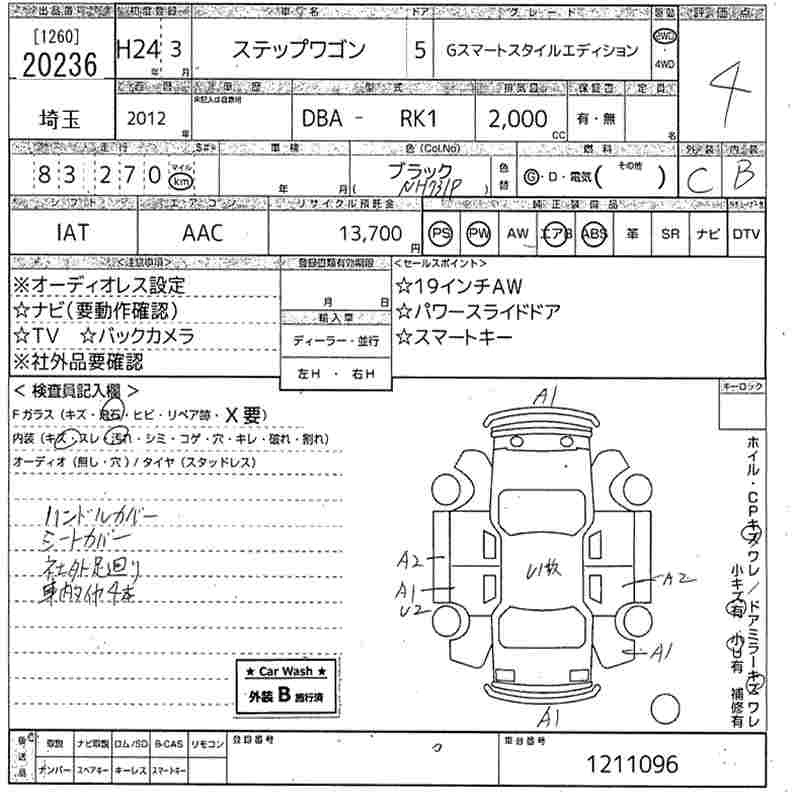 出品番号 初度登録 車名 ドア グレード 駆動 評価点
[1260]
20236
H24 年 3 月
ステップワゴン
5
Gスマートスタイルエディション
2WD
4WD
4
西暦 車歴 型式 排気量 保証書 定員
埼玉
2012 年
未記入は自家用
DBA - RK1
2,000 CC
有・無
名
走行 車検 色(Col.No) 燃料 外装 内装
83,270 マイル km
年 月
ブラック
NH731P
色替
G・D・電気( その他 )
C B
シフト エアコン リサイクル預託金 純正装備品
IAT AAC 13,700 円
PS PW AW エアB ABS 革 SR ナビ DTV
<注意事項>
※オーディオレス設定
☆ナビ(要動作確認)
☆TV ☆バックカメラ
※社外品要確認
登録書類有効期限
月 日
輸入車
ディーラー・並行
左H ・ 右H
<セールスポイント>
☆19インチAW
☆パワースライドドア
☆スマートキー
<検査員記入欄>
キーロック
Fガラス(キズ・飛石・ヒビ・リペア跡・X要)
内装(キズ・スレ・汚れ・シミ・コゲ・穴・キレ・破れ・割れ)
オーディオ(無し・穴)/タイヤ(スタッドレス)
ハンドルカバー
シートカバー
社外足廻り
車内タイヤ4本
A1
A2
A1
U2
U1枚
A2
A1
A1
ホイル・CPキズワレ/ドアミラーキズワレ
小キズ有 小U有 補修有
★ Car Wash ★
外装 B 施行済
後送品
取説 ナビ取説 ロム/SD B-CAS リモコン
ナンバー スペアキー キーレス スマートキー
登録番号
車台番号
1211096